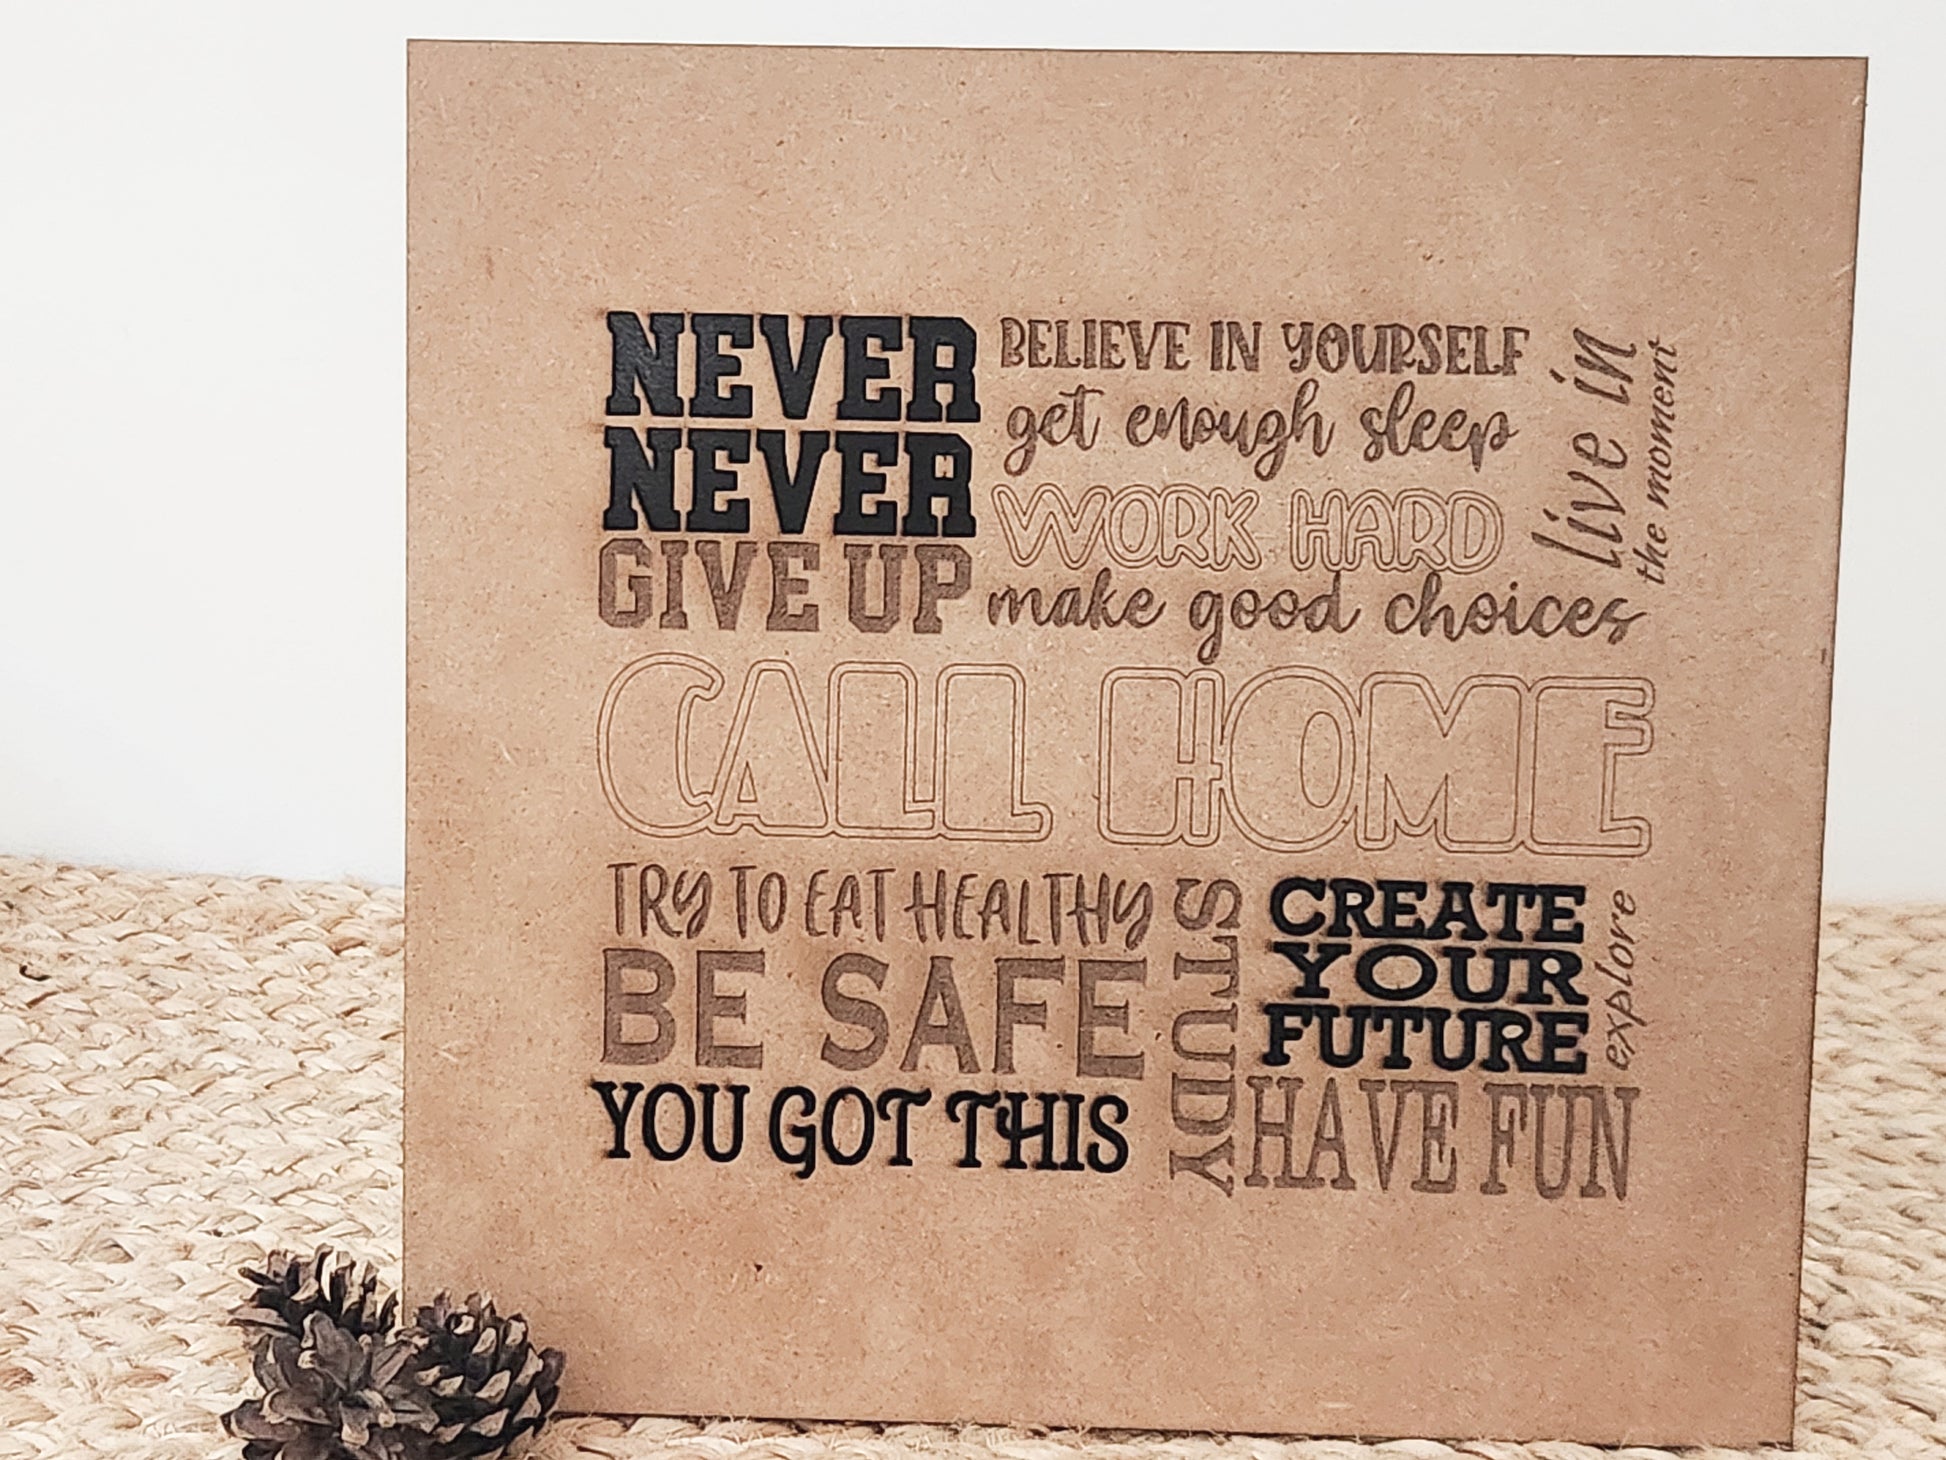 NEVER
NEVER
GIVE UP
BELIEVE IN YOURSELF
get enough sleep
WORK HARD
make good choices
live in
the moment
CALL HOME
TRY TO EAT HEALTHY
BE SAFE
YOU GOT THIS
STUDY
CREATE
YOUR
FUTURE
explore
HAVE FUN